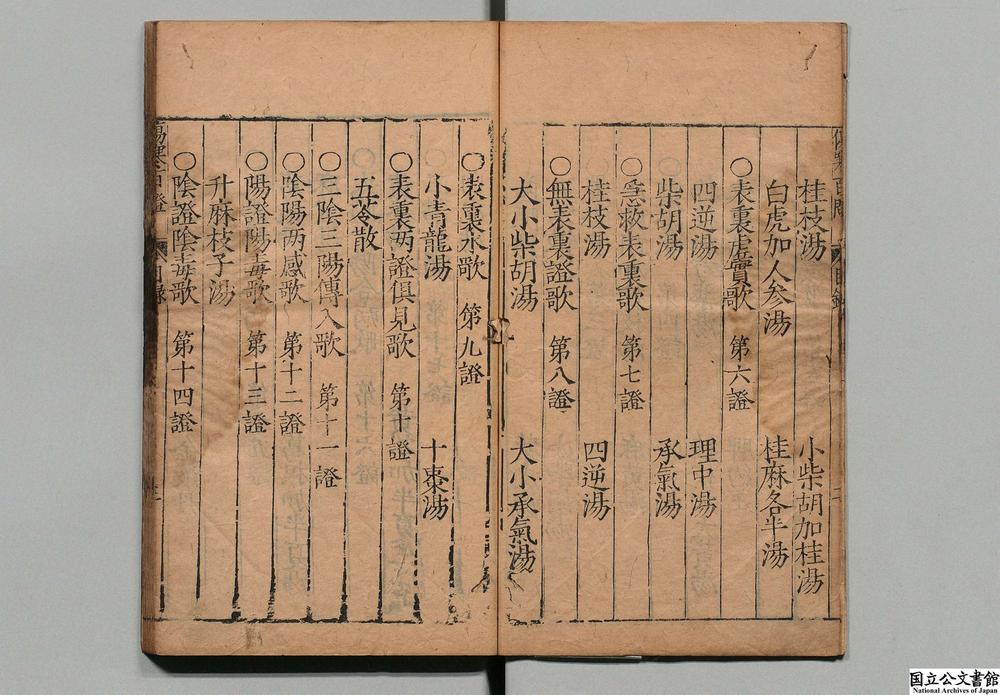 桂枝湯 小柴胡加桂湯
白虎加人参湯 桂麻各半湯
○表裏虛實歌 第六證
四逆湯 理中湯
柴胡湯 承氣湯
○急救表裏歌 第七證
桂枝湯 四逆湯
○無表裏證歌 第八證
大小柴胡湯 大小承氣湯
○表裏水歌 第九證
小青龍湯 十棗湯
○表裏两證俱見歌 第十證
五苓散
○三陰三陽傳入歌 第十一證
○陰陽两感歌 第十二證
○陽證陽毒歌 第十三證
升麻枝子湯
○陰證陰毒歌 第十四證
傷寒百證 目錄
国立公文書館
National Archives of Japan